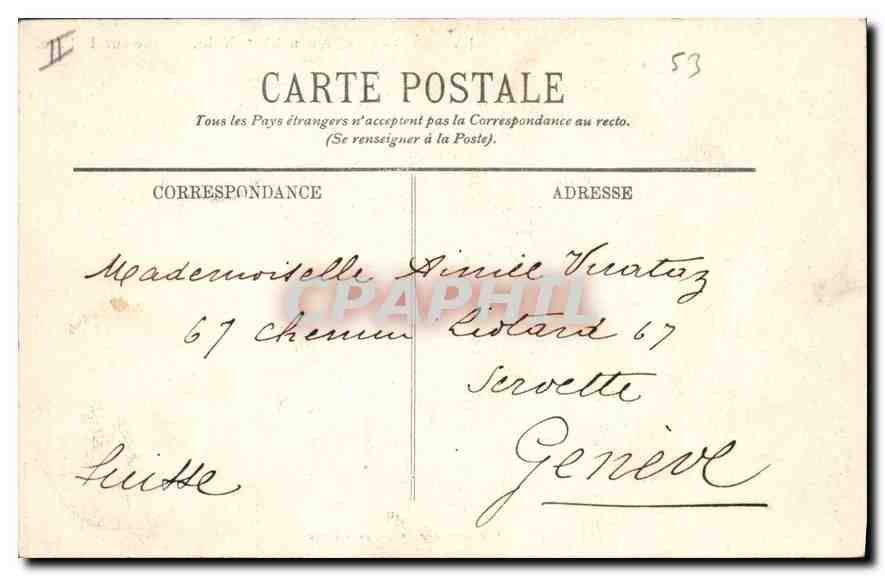 II
53
CARTE POSTALE
Tous les Pays étrangers n'acceptent pas la Correspondance au recto.
(Se renseigner à la Poste).
CORRESPONDANCE
ADRESSE
Mademoiselle Aimée
67 chemin Liotard 67
Servette
Genève
Suisse
CPAPHIL